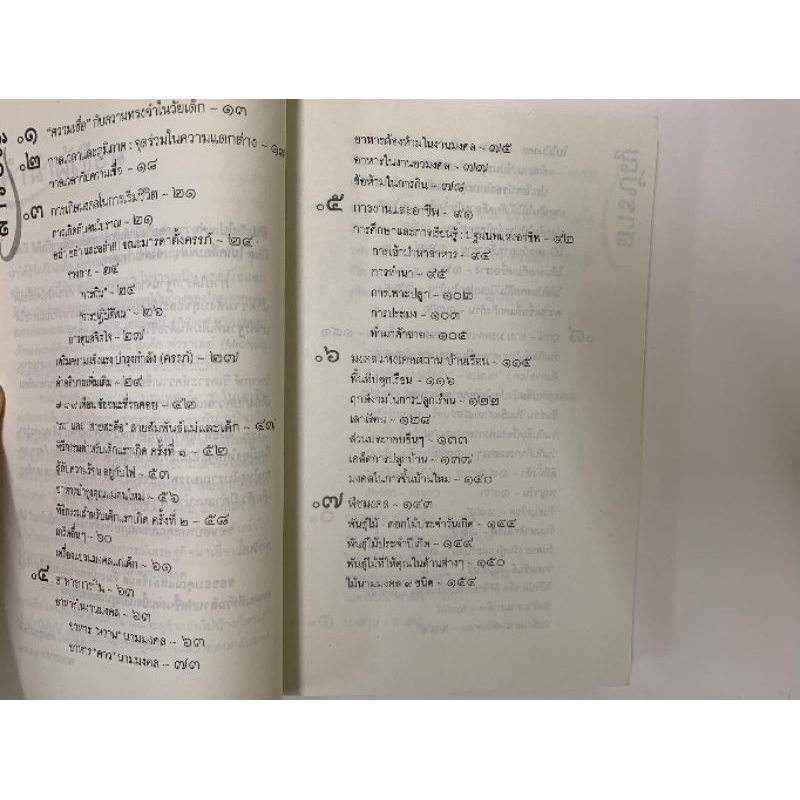 ๐๑ "ความเชื่อ" กับความทรงจำในวัยเด็ก - ๑๓
๐๒ กาลเวลาและภูมิภาค : จุดร่วมในความแตกต่าง - ๑๗
กาลเวลากับความเชื่อ - ๑๘
๐๓ การเกิดมงคลในการเริ่มชีวิต - ๒๑
การเกิดกับคนโบราณ - ๒๑
อย่า อย่า และอย่า!!! ขณะมารดาตั้งครรภ์ - ๒๔
ร่างกาย - ๒๔
"การกิน" - ๒๔
"การปฏิบัติตน" - ๒๖
การดูแลจิตใจ - ๒๗
เสริมความแข็งแรง บำรุงกำลัง (ครรภ์) - ๒๗
คำอธิบายเพิ่มเติม - ๒๙
๗-๘-๙ เดือน ชัยชนะที่รอคอย - ๔๒
"รก" และ "สายสะดือ" สายสัมพันธ์แม่และเด็ก - ๔๗
พิธีกรรมสำหรับเด็กแรกเกิด ครั้งที่ ๑ - ๕๒
สู้กับความร้อน อยู่กับไฟ - ๕๓
อาหารบำรุงคุณแม่คนใหม่ - ๕๖
พิธีกรรมสำหรับเด็กแรกเกิด ครั้งที่ ๒ - ๕๘
เกร็ดอื่นๆ - ๖๐
เครื่องแขวนมงคลแก่เด็ก - ๖๑
๐๔ อาหารการกิน - ๖๓
อาหารในงานมงคล - ๖๓
อาหาร "หวาน" นามมงคล - ๖๓
อาหาร "คาว" นามมงคล - ๗๓
อาหารต้องห้ามในงานมงคล - ๗๕
อาหารในงานอวมงคล - ๗๗
ข้อห้ามในการกิน - ๗๘
๐๕ การงานและอาชีพ - ๙๑
การศึกษาและการเรียนรู้ : ปฐมบทแห่งอาชีพ - ๙๒
การเข้าป่าหาอาหาร - ๙๕
การทำนา - ๙๕
การเพาะปลูก - ๑๐๒
การประมง - ๑๐๓
ทำมาค้าขาย - ๑๐๕
๐๖ มงคลแห่งเคหสถาน บ้านเรือน - ๑๑๕
พื้นที่ปลูกเรือน - ๑๑๖
ฤกษ์ยามในการปลูกเรือน - ๑๒๒
เสาเรือน - ๑๒๘
ส่วนประกอบอื่นๆ - ๑๓๓
เคล็ดการปลูกบ้าน - ๑๓๗
มงคลในการขึ้นบ้านใหม่ - ๑๔๐
๐๗ พืชมงคล - ๑๔๓
พันธุ์ไม้ - ดอกไม้ประจำวันเกิด - ๑๔๔
พันธุ์ไม้ประจำปีเกิด - ๑๔๙
พันธุ์ไม้ที่ให้คุณในด้านต่างๆ - ๑๕๐
ไม้นามมงคล ๙ ชนิด - ๑๕๔